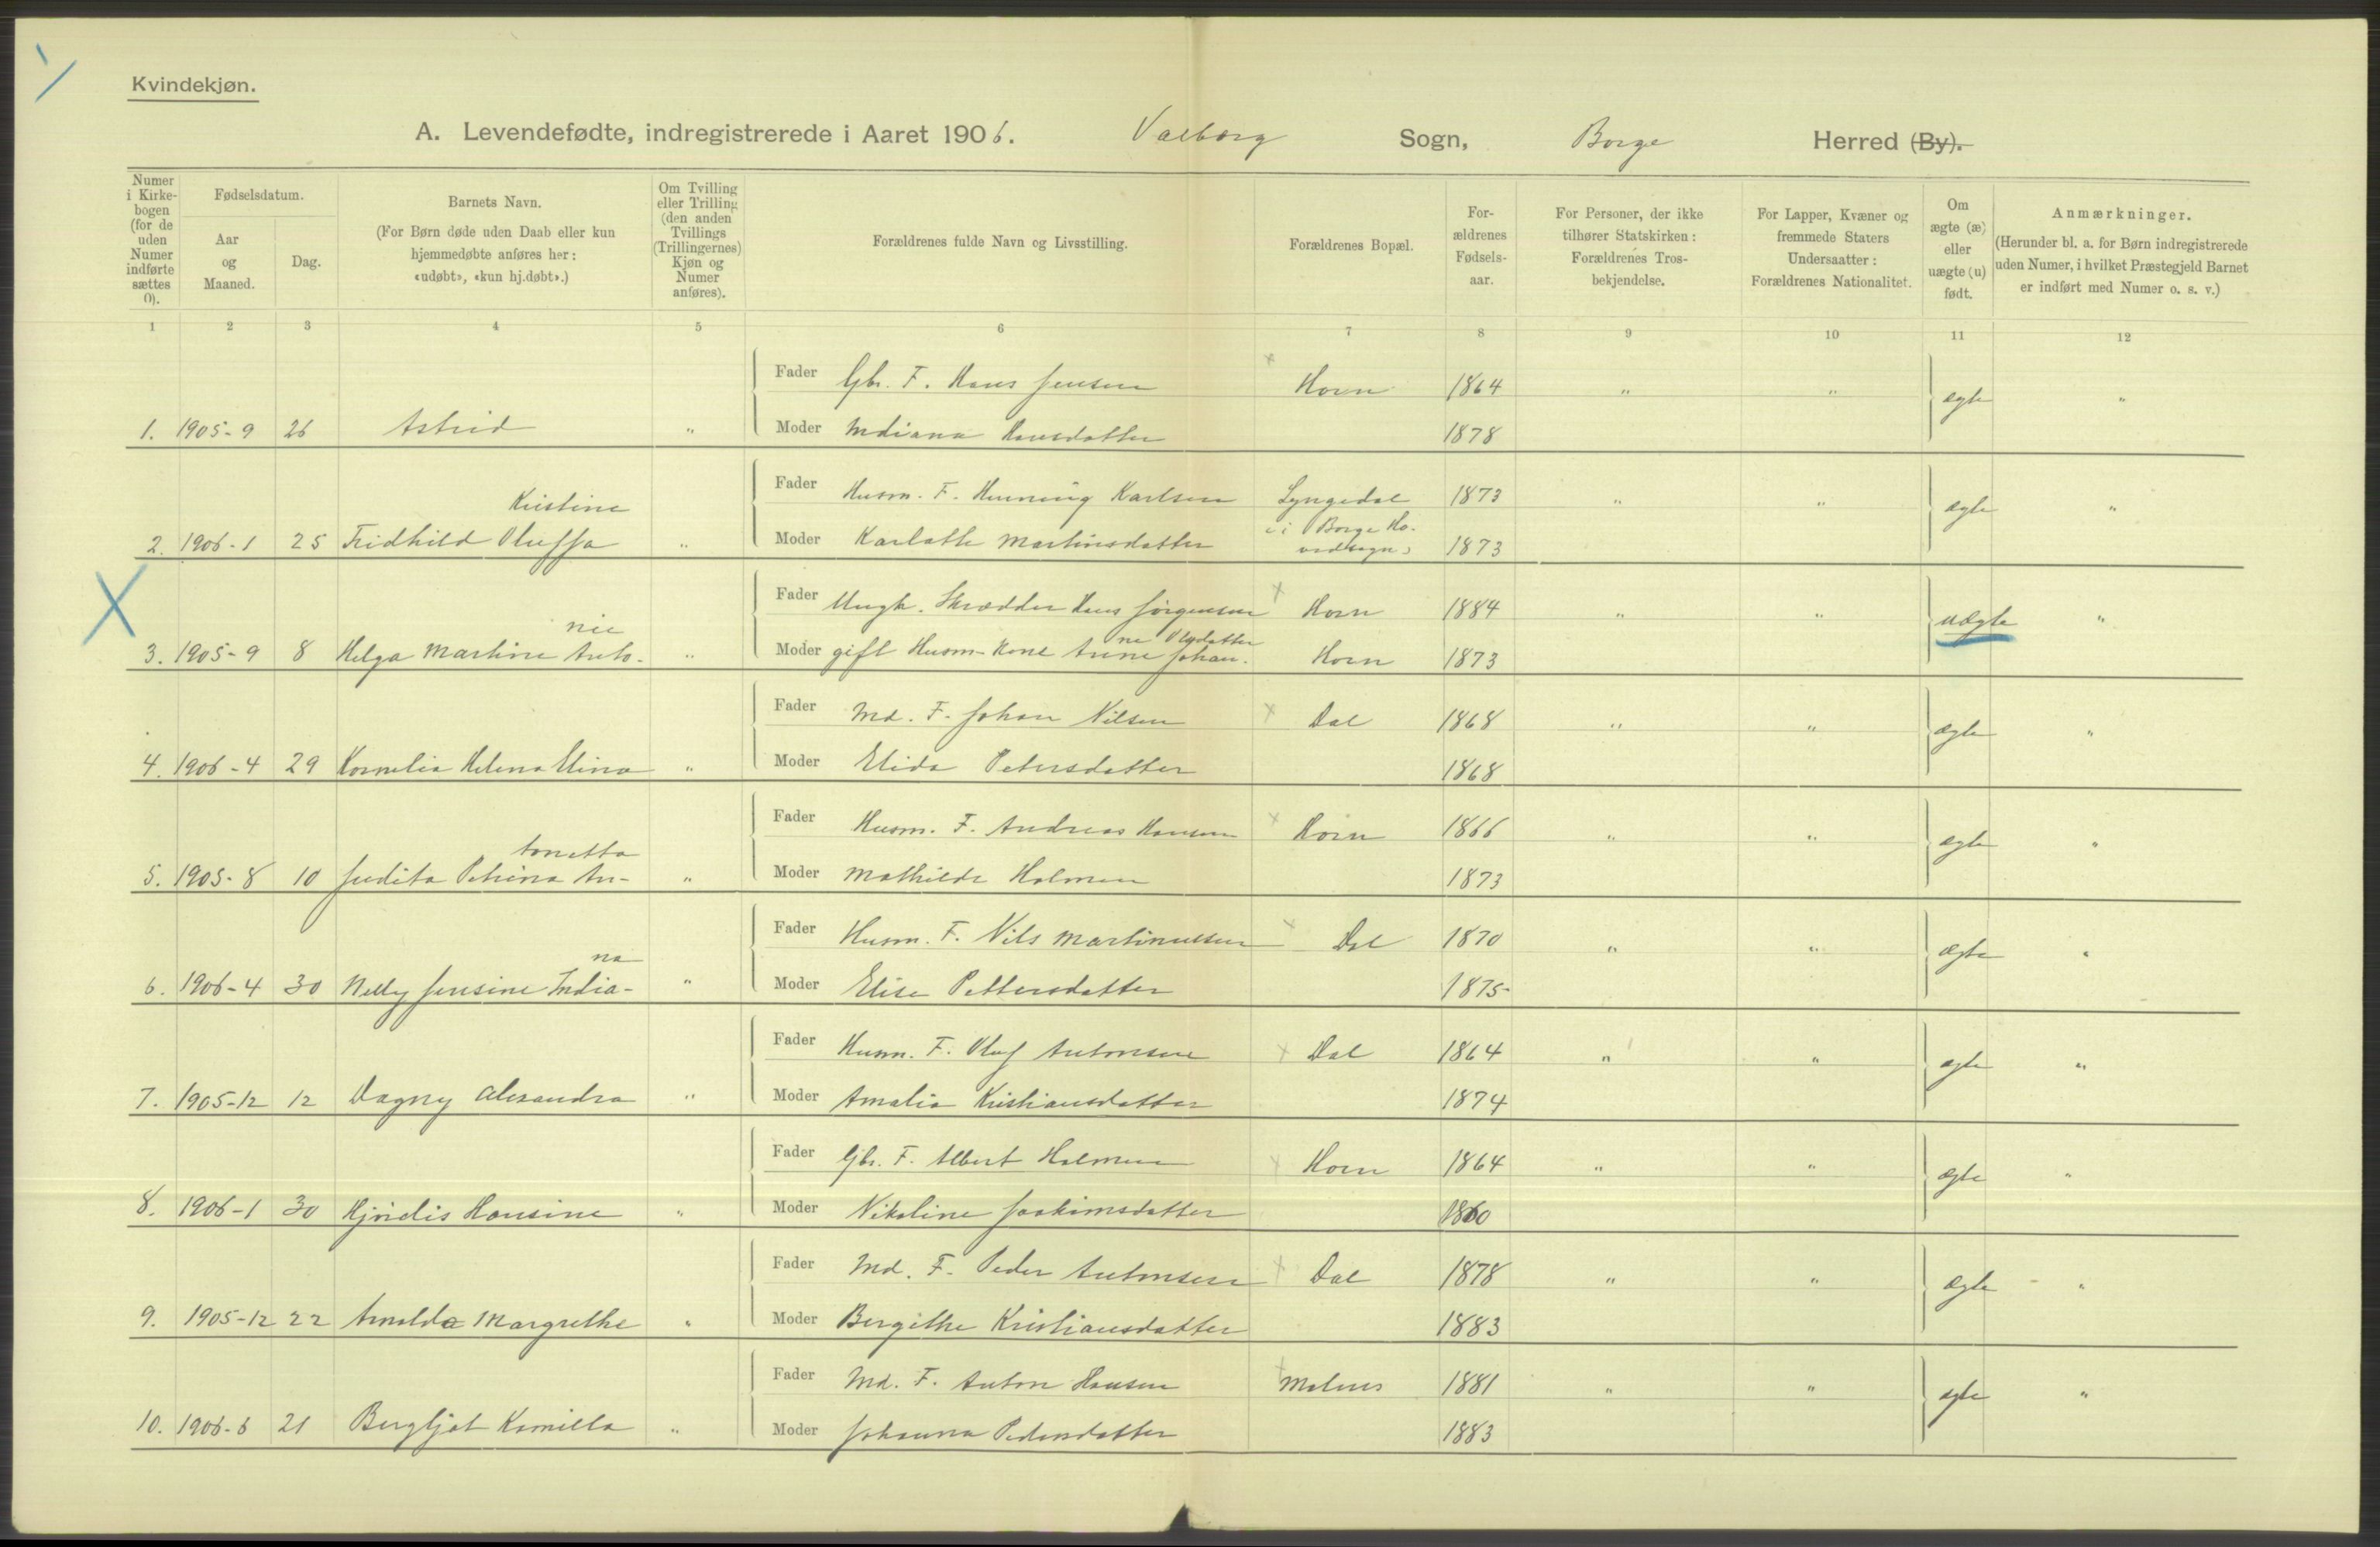 Kvindekjøn.
A. Levendefødte, indregistrerede i Aaret 1906. Valberg Sogn, Borge Herred (By).
Numer i Kirkebogen (for de uden Numer indførte sættes 0).
Fødselsdatum.
Aar og Maaned.
Dag.
Barnets Navn.
(For Børn døde uden Daab eller kun hjemmedøbte anføres her: «udøbt», «kun hj.døbt».)
Om Tvilling eller Trilling (den anden Tvillings (Trillingernes) Kjøn og Numer anføres).
Forældrenes fulde Navn og Livsstilling.
Forældrenes Bopæl.
Forældrenes Fødselsaar.
For Personer, der ikke tilhører Statskirken: Forældrenes Trosbekjendelse.
For Lapper, Kvæner og fremmede Staters Undersaatter: Forældrenes Nationalitet.
Om ægte (æ) eller uægte (u) født.
Anmærkninger.
(Herunder bl. a. for Børn indregistrerede uden Numer, i hvilket Præstegjeld Barnet er indført med Numer o. s. v.)
1 2 3 4 5 6 7 8 9 10 11 12
Fader Gbr. F. Hans Jensen Horn 1864 " " ægte "
1. 1905-9 26 Astrid " Moder Indiana Hansdatter 1878
Fader Husm. F. Henning Karlsen Lyngedal 1873 " " ægte "
Kristine
2. 1906-1 25 Fridhild Oluffa " Moder Karlotte Martinsdatter (i Borge Hovedsogn) 1873
Fader Ungk. Skrædder Hans Jørgensen Horn 1884 " " uægte "
nie
ne Olsdatter
3. 1905-9 8 Helga Martine Anto- " Moder gift Husm-Kone Anne Johan- Horn 1873
Fader Ind. F. Johan Nilsen Dal 1868 " " ægte "
4. 1906-4 29 Kornelia Helena Elina " Moder Elida Petersdatter 1868
Fader Husm. F. Andreas Hansen Horn 1866 " " ægte "
tonetta
5. 1905-8 10 Judita Petrina An- " Moder Mathilde Holmen 1873
Fader Husm. F. Nils Martinussen Dal 1870 " " ægte "
na
6. 1906-4 30 Nelly Jensine India- " Moder Elise Pettersdatter 1875
Fader Husm. F. Olaf Antonsen Dal 1864 " " ægte "
7. 1905-12 12 Dagny Alexandra " Moder Amalia Kristiansdatter 1874
Fader Gbr. F. Albert Holmen Horn 1864 " " ægte "
8. 1906-1 30 Hjördis Hansine " Moder Nikoline Joakimsdatter 1860
Fader Ind. F. Peder Antonsen Dal 1878 " " ægte "
9. 1905-12 22 Arnolda Margrethe " Moder Bergithe Kristiansdatter 1883
Fader Ind. F. Anton Hansen Molnes 1881 " " ægte "
10. 1906-6 21 Bergljot Kamilla " Moder Johanna Pedersdatter 1883